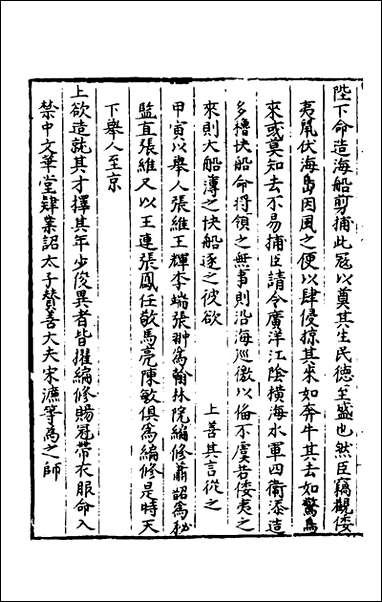 陛下命造海船剪捕此寇以奠其生民德至盛也然臣竊觀倭
夷鼠伏海島因風之便以肆侵掠其来如奔牛其去如驚鳥
來或莫知去不易捕臣請令廣洋江陰橫海水軍四衛添造
多櫓快船命将領之無事則沿海巡徼以備不虞若倭夷之
來則大船薄之快船逐之彼欲　　上善其言從之
甲寅以舉人張維王輝李端張翀爲翰林院編修蕭韶爲秘
監直張維又以王連張鳳任敬馬亮陳敏俱爲編修是時天
下舉人至京
上欲造就其才擇其年少俊異者皆擢編修賜冠帶衣服命入
禁中文華堂肄業詔太子賛善大夫宋濂等爲之師